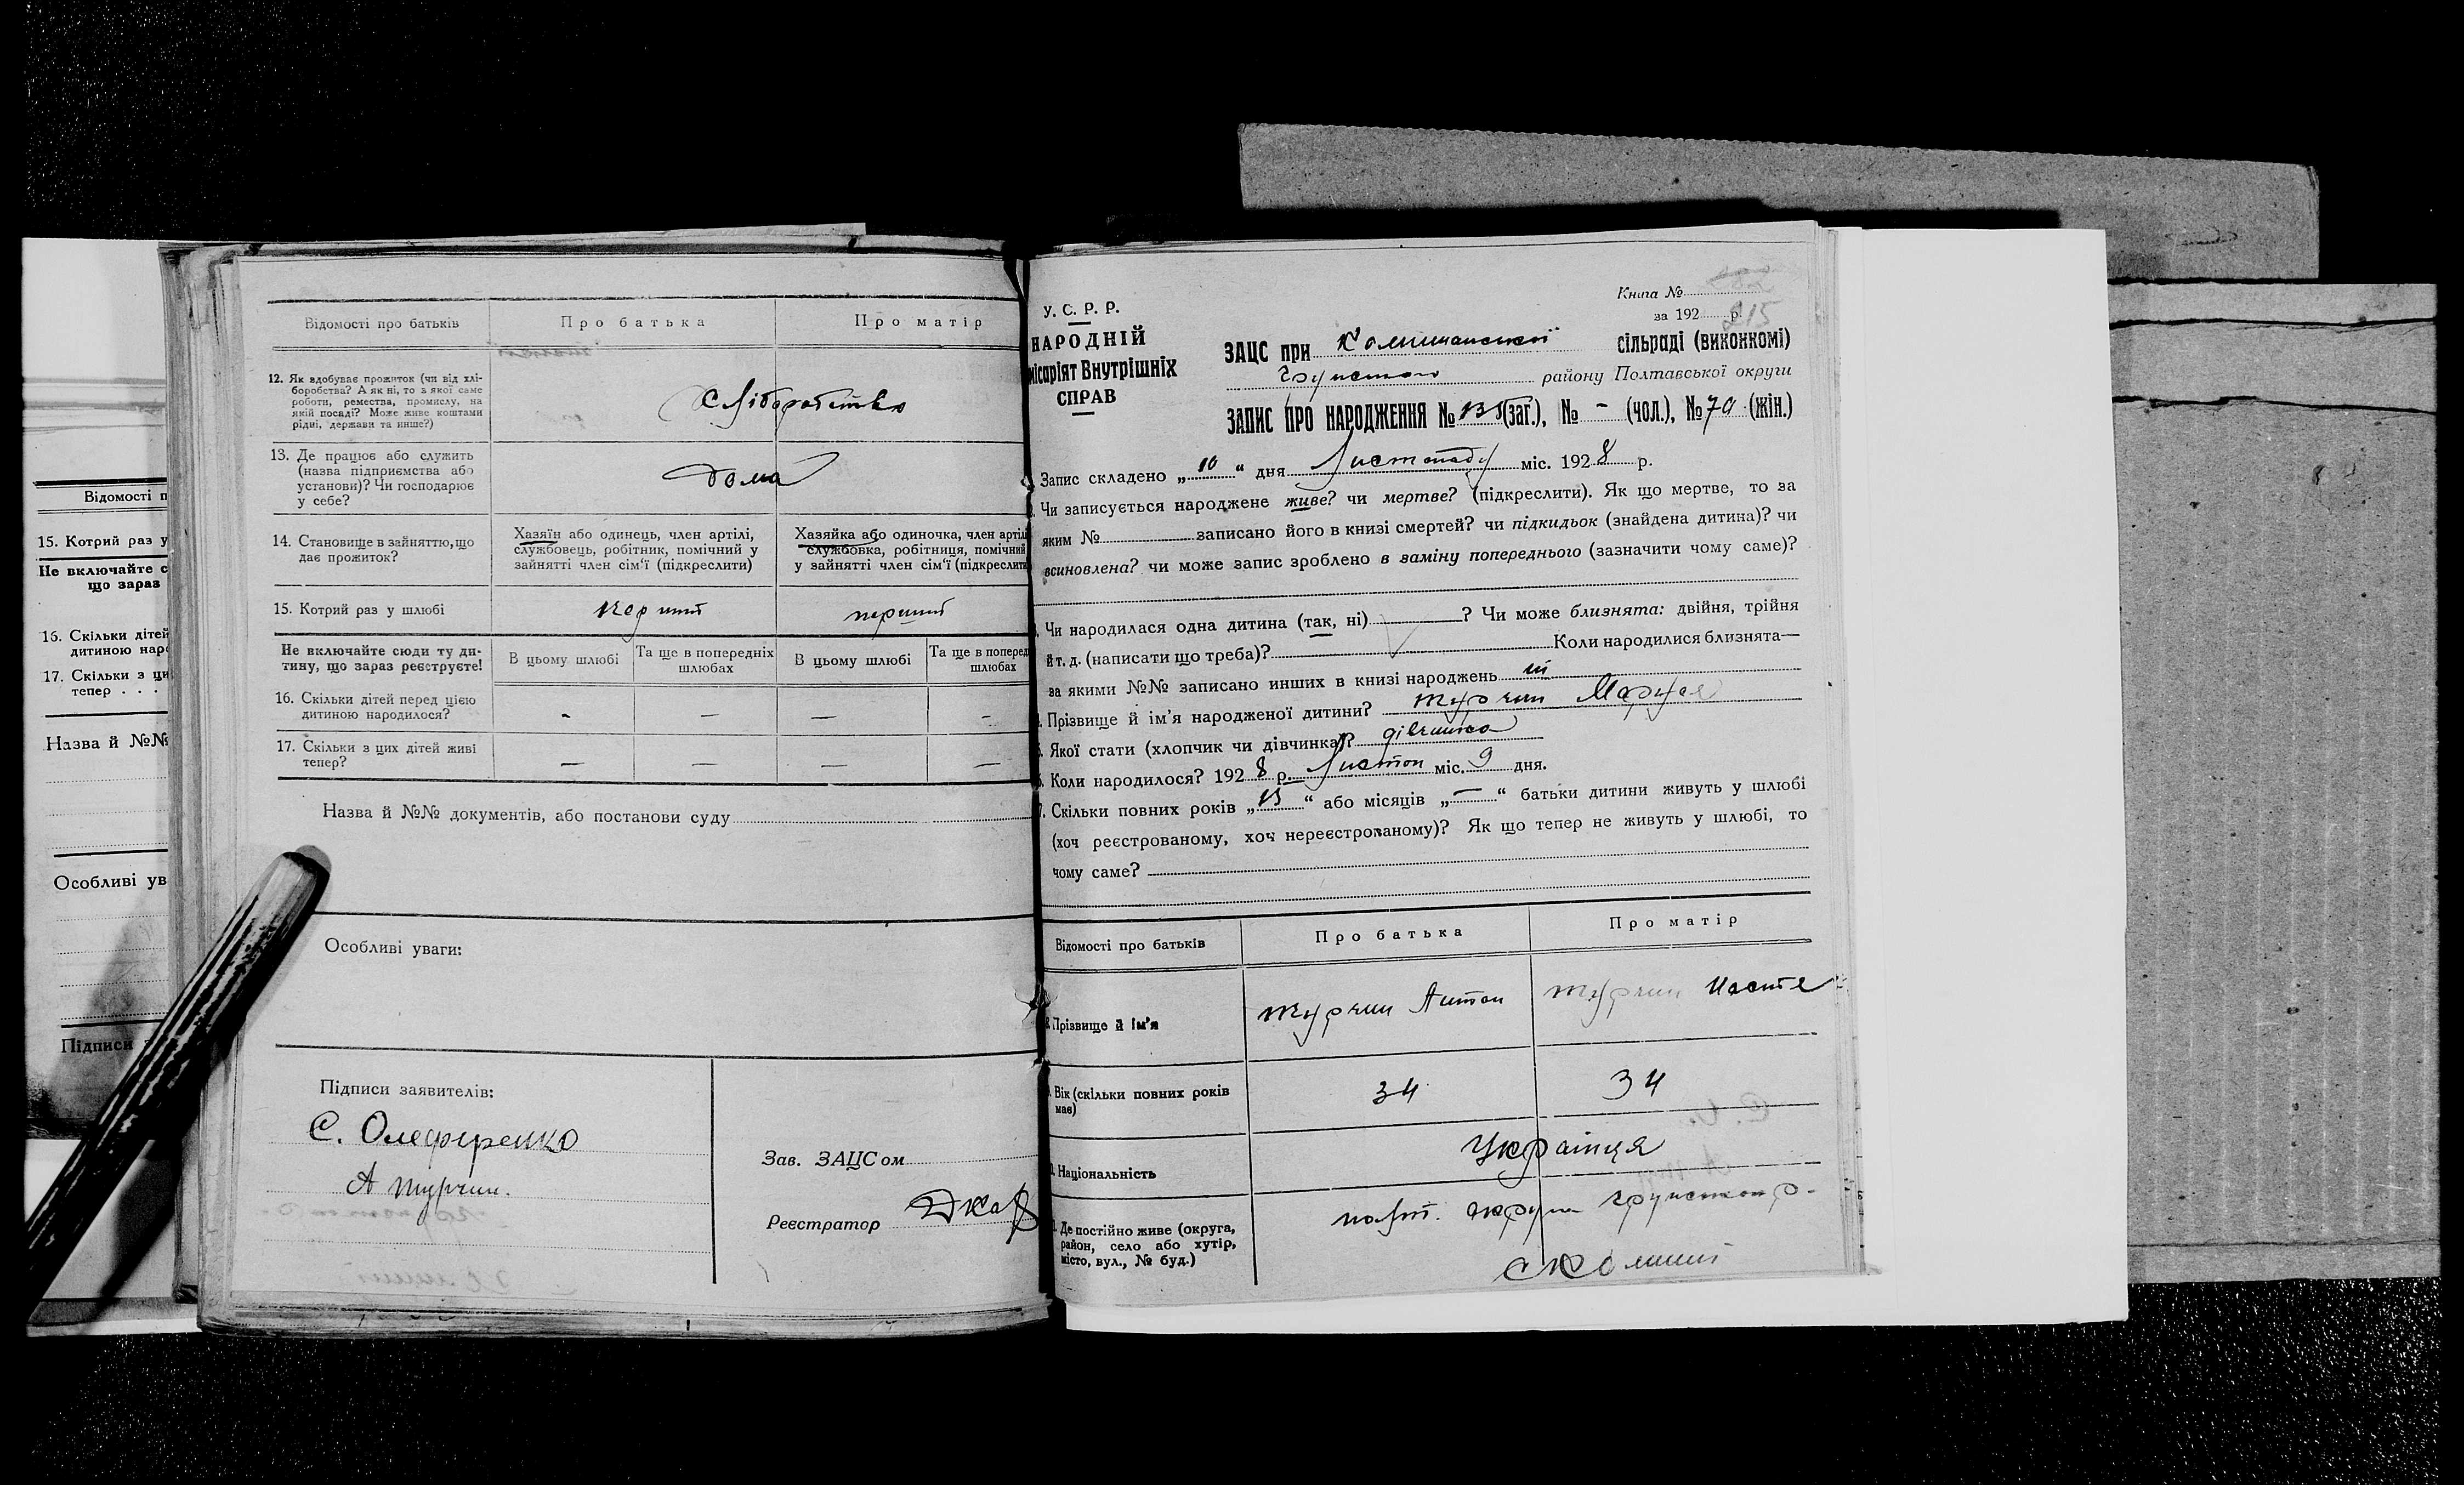 Відомості п
15. Котрий раз у
Не включайте с
що зараз
16. Скільки дітей
дитиною наро
17. Скільки з ци
тепер . . .
Назва й №№
Особливі ув
Підписи
Відомості про батьків
Про батька
Про матір
12. Як здобуває прожиток (чи від хлі-
боробства? А як ні, то з якої саме
роботи, ремества, промислу, на
якій посаді? Може живе коштами
рідні, держави та инше?)
Хліборобство
13. Де працює або служить
(назва підприємства або
установи)? Чи господарює
у себе?
Дома
14. Становище в зайняттю, що
дає прожиток?
Хазяїн або одинець, член артілі,
службовець, робітник, помічний у
зайнятті член сім'ї (підкреслити)
Хазяйка або одиночка, член артілі
службовка, робітниця, помічний
у зайнятті член сім'ї (підкреслити
15. Котрий раз у шлюбі
перший
Не включайте сюди ту ди-
тину, що зараз реєструєте!
В цьому шлюбі
Та ще в попередніх
шлюбах
В цьому шлюбі
Та ще в поперед
шлюбах
16. Скільки дітей перед цією
дитиною народилося?
- — — -
17. Скільки з цих дітей живі
тепер?
— — — —
Назва й №№ документів, або постанови суду
Особливі уваги:
Підписи заявителів:
С. Олефиренко
А Турчин.
Зав. ЗАЦСом
Реєстратор
У. С. Р. Р.
НАРОДНІЙ
місаріят Внутрішніх
СПРАВ
Книга №
за 192 р.
215
ЗАЦС при Комишанській сільраді (виконкомі)
Грунського району Полтавської округи
ЗАПИС ПРО НАРОДЖЕННЯ № (заг.), № - (чол.), № 70 (жін.)
Запис складено „10“ дня Листопаду міс. 1928 р.
Чи записується народжене живе? чи мертве? (підкреслити). Як що мертве, то за
яким № записано його в книзі смертей? чи підкидьок (знайдена дитина)? чи
всиновлена? чи може запис зроблено в заміну попереднього (зазначити чому саме)?
Чи народилася одна дитина (так, ні) ? Чи може близнята: двійня, трійня
й т. д. (написати що треба)? Коли народилися близнята—
за якими №№ записано инших в книзі народжень
Прізвище й ім'я народженої дитини? Турчин Маруся
Якої стати (хлопчик чи дівчинка)? дівчинка
Коли народилося? 1928 р. Листоп міс. 9 дня.
Скільки повних років „13“ або місяців „—“ батьки дитини живуть у шлюбі
(хоч реєстрованому, хоч нереєстрованому)? Як що тепер не живуть у шлюбі, то
чому саме?
Відомості про батьків
Про батька
Про матір
Прізвище й ім'я
Турчин Антон
Турчин Настя
Вік (скільки повних років
має)
34
34
Національність
Українця
Де постійно живе (округа,
район, село або хутір,
місто, вул., № буд.)
Полт. округи р-
с Комиші